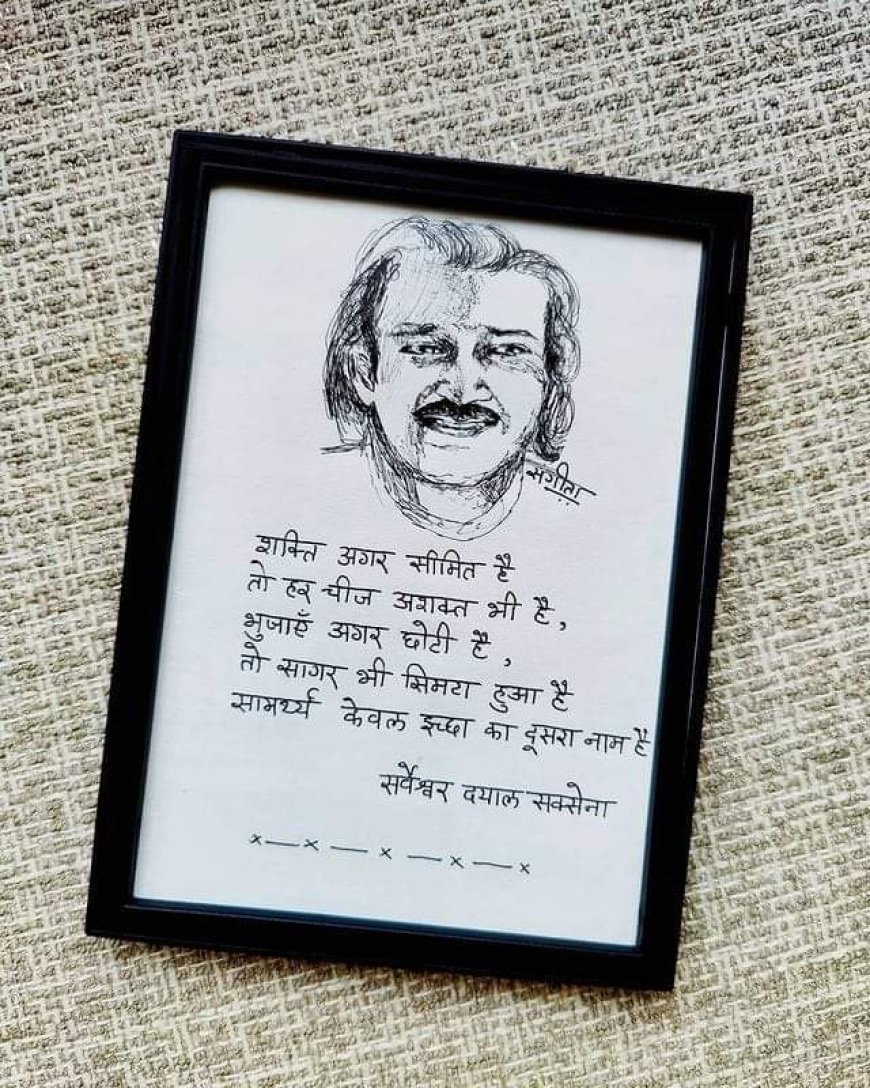 संगीता
शक्ति अगर सीमित है
तो हर चीज अशक्त भी है,
भुजाएँ अगर छोटी है,
तो सागर भी सिमटा हुआ है
सामर्थ्य केवल इच्छा का दूसरा नाम है
सर्वेश्वर दयाल सक्सेना
x — x — x — x — x